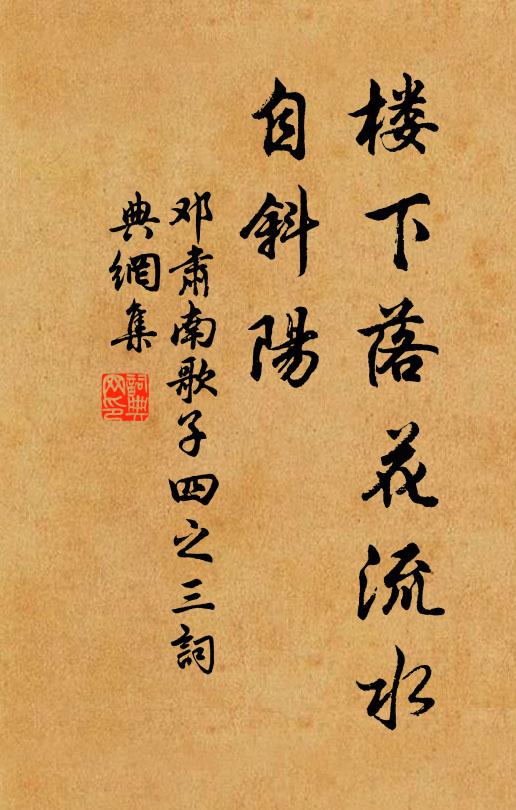 楼下落花流水
自斜陽
邓肅南歌子四之三詞
典網集
詞典
网印